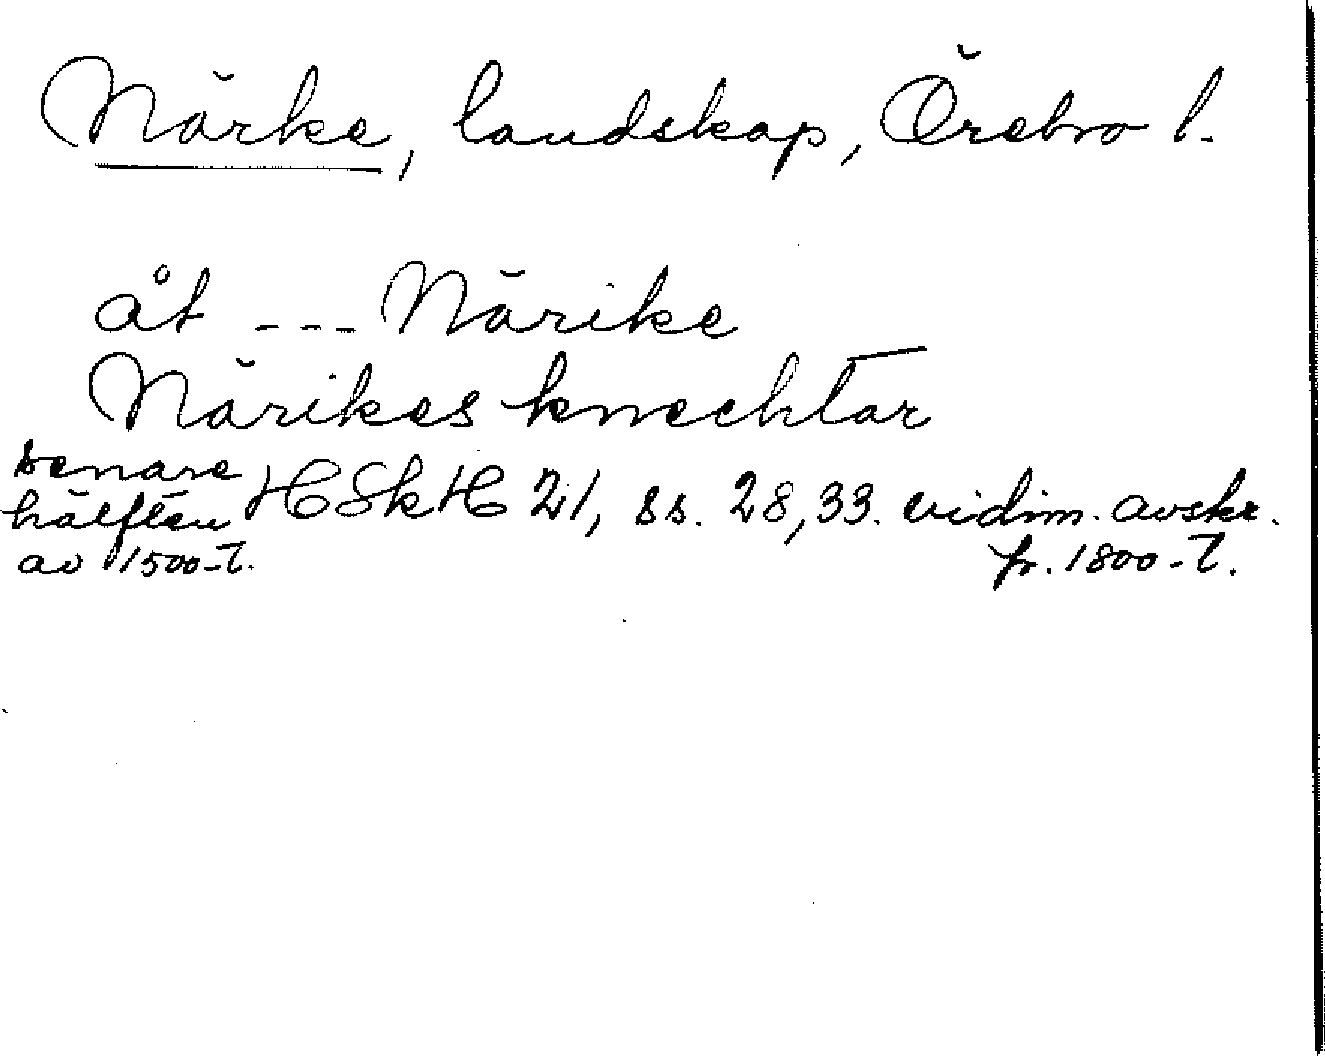 Närke, landskap, Örebro l.
åt --- Närike
Närikes knechtar
senare
hälften HSkH 21, ss. 28, 33. vidim. avskr.
av 1500-t. fr. 1800-t.